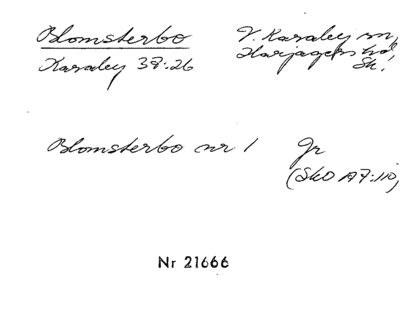 Blomsterbo V. Karaby sn,
Karaby 37:26 Harjagers hd,
Sk.
Blomsterbo nr 1 Gr
(SkO A7:110)
Nr 21666